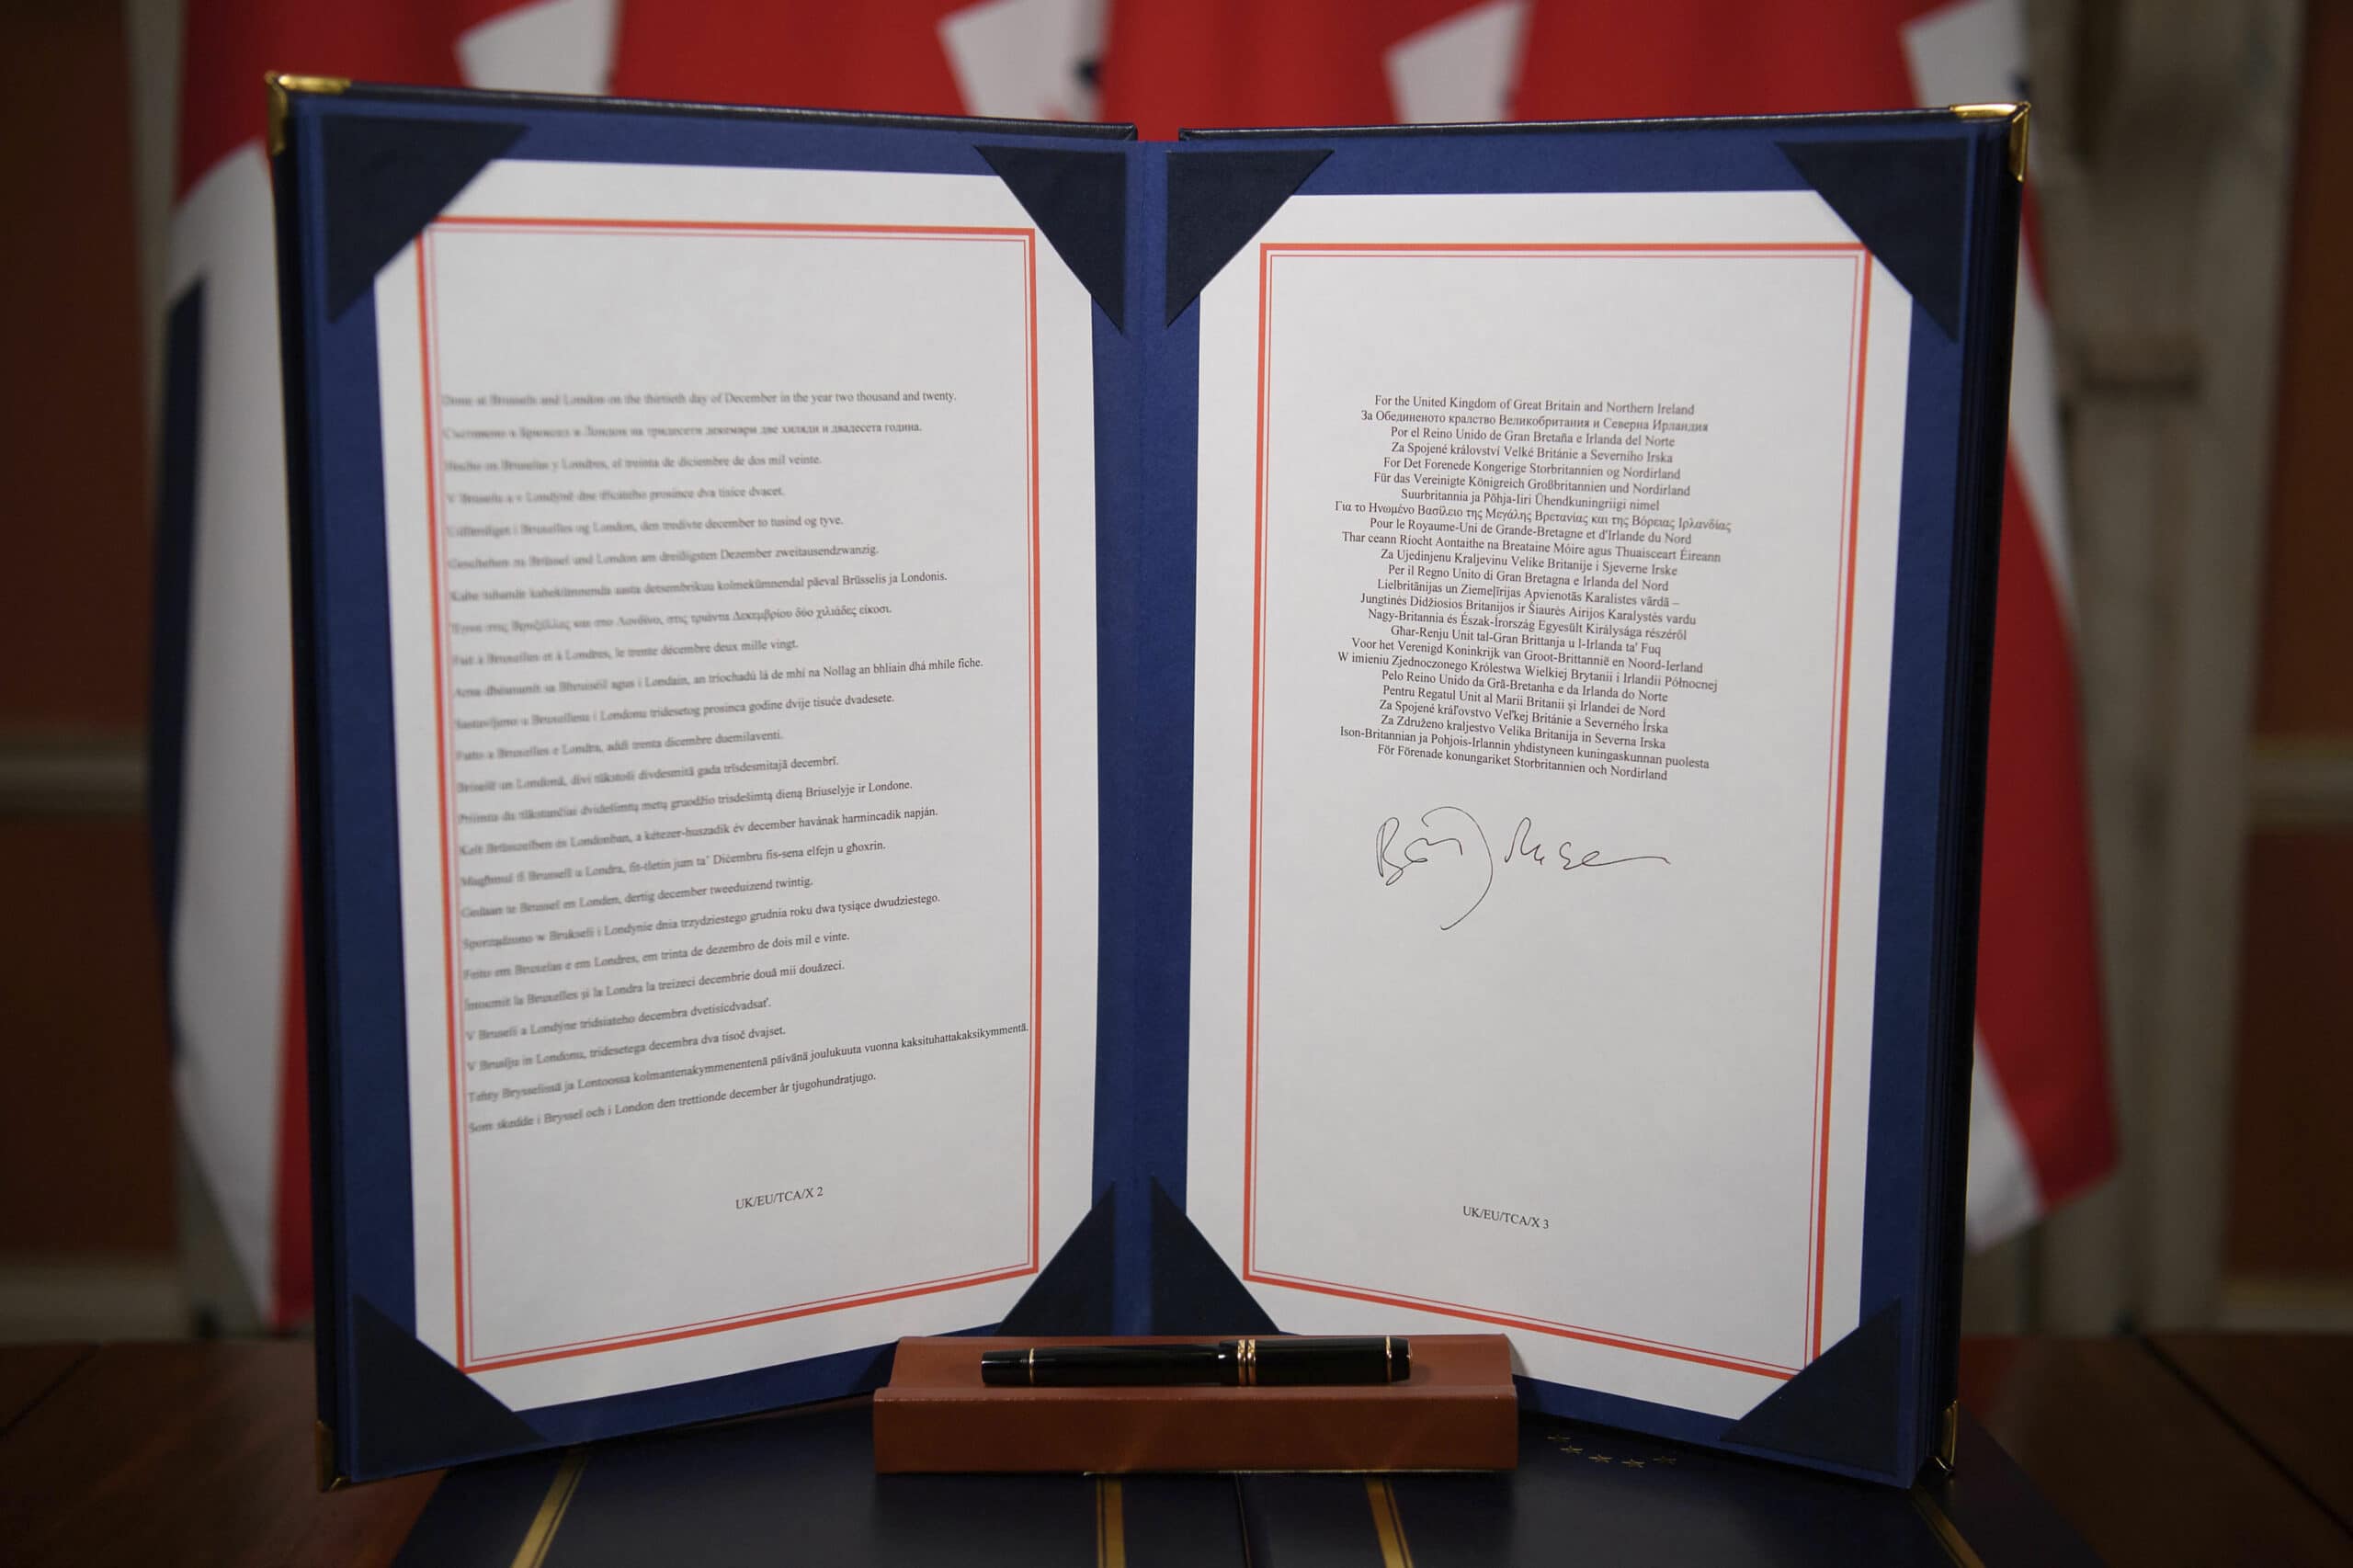 Done at Brussels and London on the thirtieth day of December in the year two thousand and twenty.
Съставено в Брюксел и Лондон на тридесети декември две хиляди и двадесета година.
Hecho en Bruselas y Londres, el treinta de diciembre de dos mil veinte.
V Bruselu a v Londýně dne třicátého prosince dva tisíce dvacet.
Udfærdiget i Bruxelles og London, den tredivte december to tusind og tyve.
Geschehen zu Brüssel und London am dreißigsten Dezember zweitausendzwanzig.
Kahe tuhande kahekümnenda aasta detsembrikuu kolmekümnendal päeval Brüsselis ja Londonis.
Έγινε στις Βρυξέλλες και στο Λονδίνο, στις τριάντα Δεκεμβρίου δύο χιλιάδες είκοσι.
Fait à Bruxelles et à Londres, le trente décembre deux mille vingt.
Arna dhéanamh sa Bhruiséil agus i Londain, an tríochadú lá de mhí na Nollag an bhliain dhá mhíle fiche.
Sastavljeno u Bruxellesu i Londonu tridesetog prosinca godine dvije tisuće dvadesete.
Fatto a Bruxelles e Londra, addì trenta dicembre duemilaventi.
Briselē un Londonā, divi tūkstoši divdesmitā gada trīsdesmitajā decembrī.
Priimta du tūkstančiai dvidešimtų metų gruodžio trisdešimtą dieną Briuselyje ir Londone.
Kelt Brüsszelben és Londonban, a kétezer-huszadik év december havának harmincadik napján.
Magħmul fi Brussell u Londra, fit-tletin jum ta' Diċembru fis-sena elfejn u għoxrin.
Gedaan te Brussel en Londen, dertig december tweeduizend twintig.
Sporządzono w Brukseli i Londynie dnia trzydziestego grudnia roku dwa tysiące dwudziestego.
Feito em Bruxelas e em Londres, em trinta de dezembro de dois mil e vinte.
Întocmit la Bruxelles și la Londra la treizeci decembrie două mii douăzeci.
V Bruseli a Londýne tridsiateho decembra dvetisícdvadsať.
V Bruslju in Londonu, tridesetega decembra dva tisoč dvajset.
Tehty Brysselissä ja Lontoossa kolmantenakymmenentenä päivänä joulukuuta vuonna kaksituhattakaksikymmentä.
Som skedde i Bryssel och i London den trettionde december år tjugohundratjugo.
UK/EU/TCA/X 2
For the United Kingdom of Great Britain and Northern Ireland
За Обединеното кралство Великобритания и Северна Ирландия
Por el Reino Unido de Gran Bretaña e Irlanda del Norte
Za Spojené království Velké Británie a Severního Irska
For Det Forenede Kongerige Storbritannien og Nordirland
Für das Vereinigte Königreich Großbritannien und Nordirland
Suurbritannia ja Põhja-Iiri Ühendkuningriigi nimel
Για το Ηνωμένο Βασίλειο της Μεγάλης Βρετανίας και της Βόρειας Ιρλανδίας
Pour le Royaume-Uni de Grande-Bretagne et d'Irlande du Nord
Thar ceann Ríocht Aontaithe na Breataine Móire agus Thuaisceart Éireann
Za Ujedinjenu Kraljevinu Velike Britanije i Sjeverne Irske
Per il Regno Unito di Gran Bretagna e Irlanda del Nord
Lielbritānijas un Ziemeļīrijas Apvienotās Karalistes vārdā –
Jungtinės Didžiosios Britanijos ir Šiaurės Airijos Karalystės vardu
Nagy-Britannia és Észak-Írország Egyesült Királysága részéről
Għar-Renju Unit tal-Gran Brittanja u l-Irlanda ta' Fuq
Voor het Verenigd Koninkrijk van Groot-Brittannië en Noord-Ierland
W imieniu Zjednoczonego Królestwa Wielkiej Brytanii i Irlandii Północnej
Pelo Reino Unido da Grã-Bretanha e da Irlanda do Norte
Pentru Regatul Unit al Marii Britanii și Irlandei de Nord
Za Spojené kráľovstvo Veľkej Británie a Severného Írska
Za Združeno kraljestvo Velika Britanija in Severna Irska
Ison-Britannian ja Pohjois-Irlannin yhdistyneen kuningaskunnan puolesta
För Förenade konungariket Storbritannien och Nordirland
UK/EU/TCA/X 3